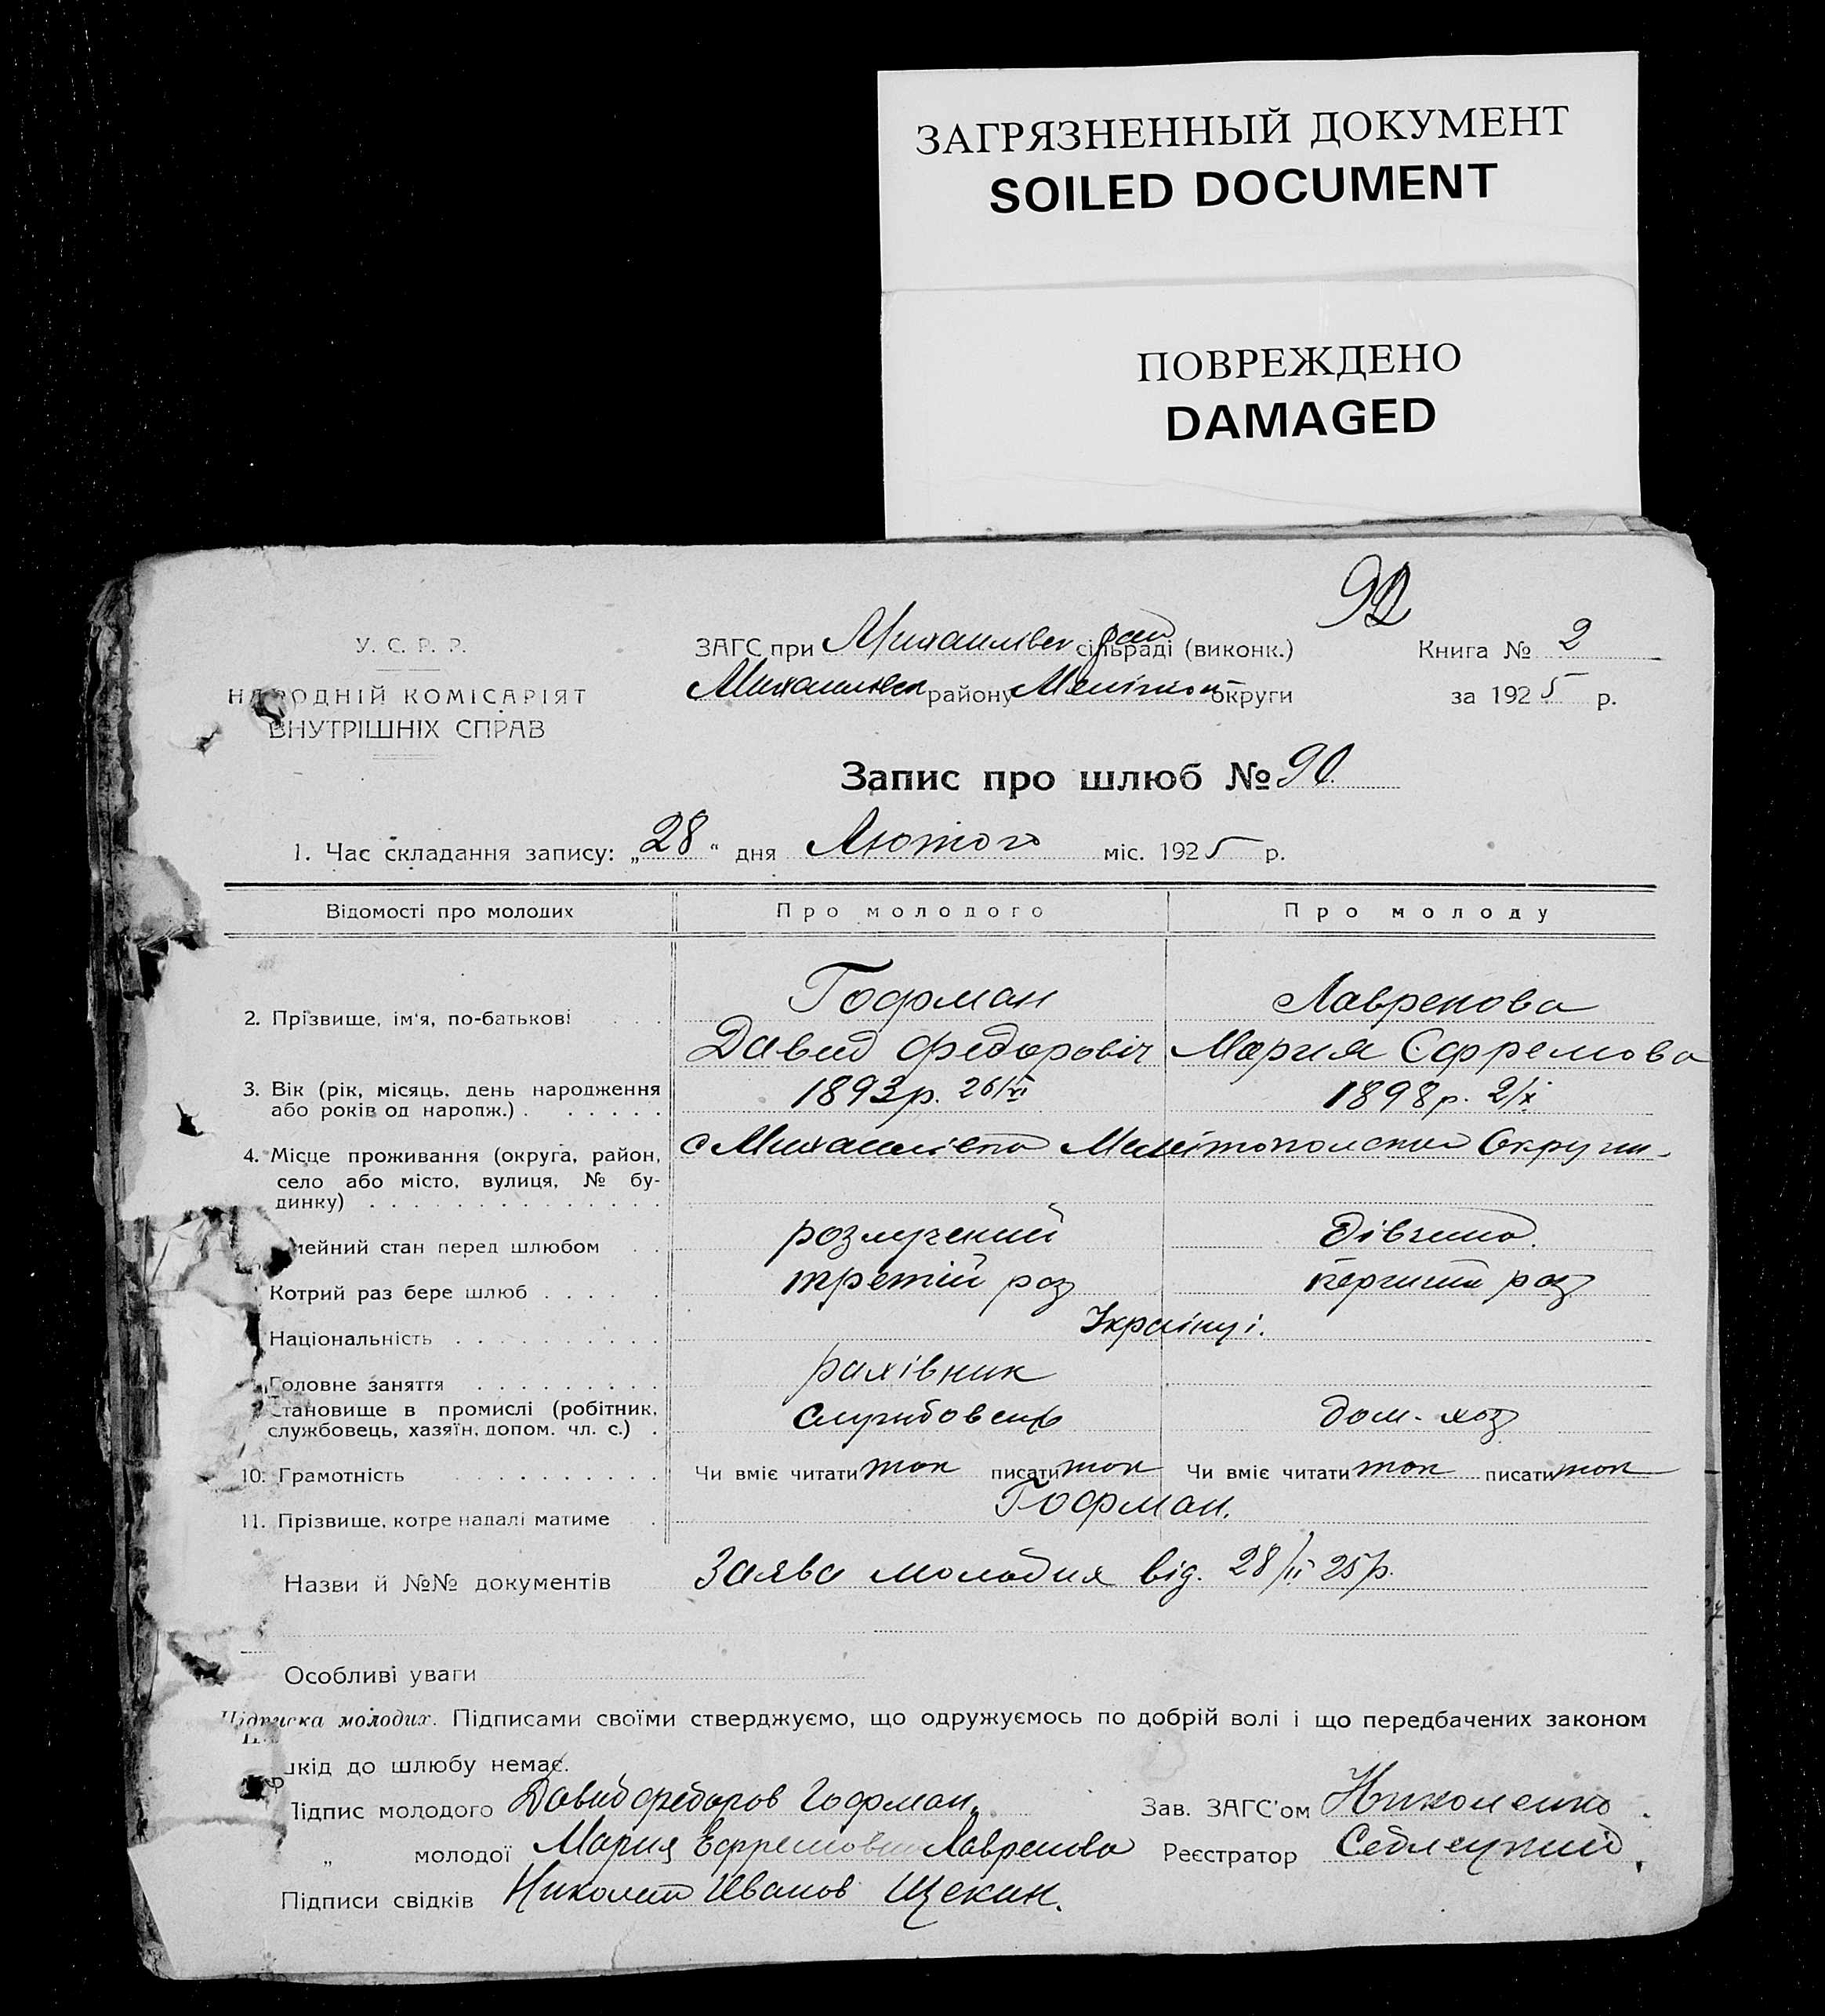 ЗАГРЯЗНЕННЫЙ ДОКУМЕНТ
SOILED DOCUMENT
ПОВРЕЖДЕНО
DAMAGED
У. С. Р. Р.
НАРОДНІЙ КОМІСАРІЯТ
ВНУТРІШНІХ СПРАВ
ЗАГС при сільраді (виконк.)
району округи
Книга № 2
за 1925 р.
Запис про шлюб № 90
1. Час складання запису: „28“ дня Лютого міс. 1925 р.
Відомості про молодих Про молодого Про молоду
2. Прізвище, ім'я, по-батькові . . . Гофман Лавренова
Давид Федоровіч Мария Ефремова
3. Вік (рік, місяць, день народження 1893р. 26/VI 1898р. 2/X
або років од народж.) . . . . . .
4. Місце проживання (округа, район, с Михайлівка Мелітопольскої Округи
село або місто, вулиця, № бу-
динку) . . . . . . . . . . . . . .
мейний стан перед шлюбом . . розлучений дівчина.
Котрий раз бере шлюб . . . . . третій раз перший раз
Національність . . . . . . . . . . Українці.
Головне заняття . . . . . . . . . рахівник
Становище в промислі (робітник, службовець дом. хоз
службовець, хазяїн, допом. чл. с.) .
10. Грамотність . . . . . . . . . . Чи вміє читати так писати так Чи вміє читати так писати так
11. Прізвище, котре надалі матиме . Гофман.
Назви й №№ документів Заява молодих від. 28/II 25р.
Особливі уваги
Підписка молодих. Підписами своїми стверджуємо, що одружуємось по добрій волі і що передбачених законом
шкід до шлюбу немає.
Підпис молодого Давид Федоров Гофман. Зав. ЗАГС'ом Николенко
„ молодої Мария Ефремовна Лавренова Реєстратор
Підписи свідків Николай Иванов Щекин.